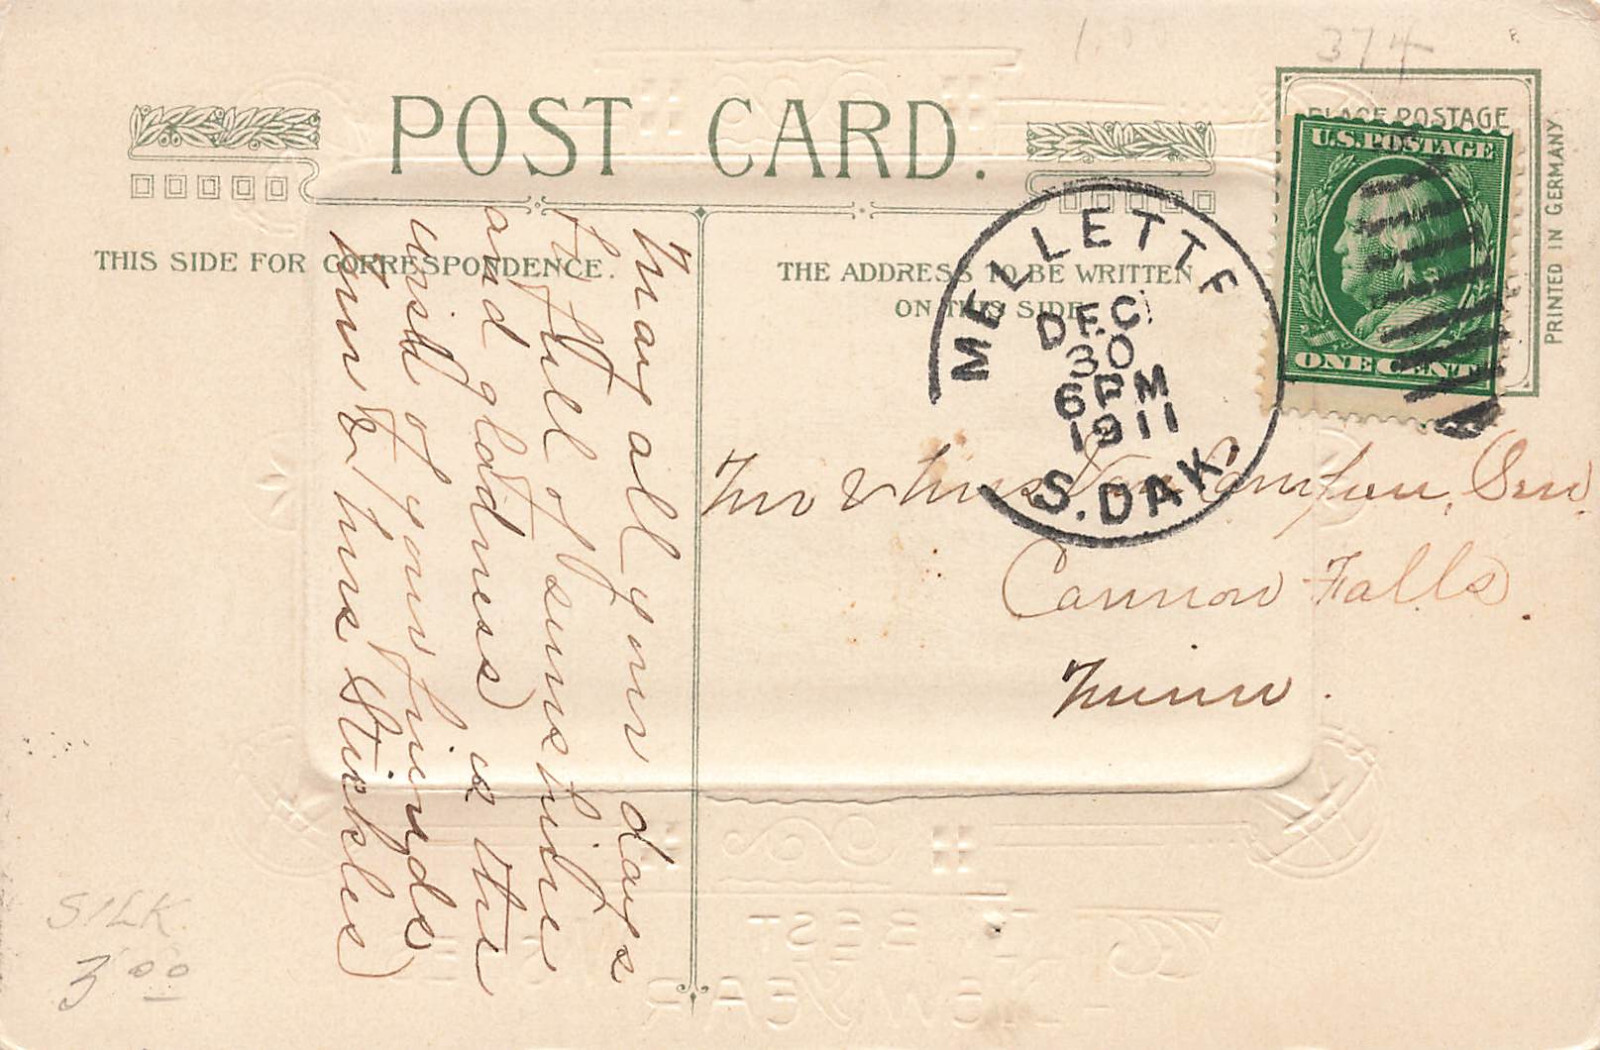 1.00
374
POST CARD.
PLACE POSTAGE
U.S. POSTAGE
ONE CENT
PRINTED IN GERMANY
THIS SIDE FOR CORRESPONDENCE.
THE ADDRESS TO BE WRITTEN
ON THIS SIDE
MELLETTE
DEC
30
6 PM
1911
S. DAK.
May all your days
be full of sunshine
and gladness is the
wish of your friends
Mr & Mrs Stickles
Mr & Mrs Senr.
Cannon Falls.
Minn.
SILK
3.00
BEST
NEW YEAR